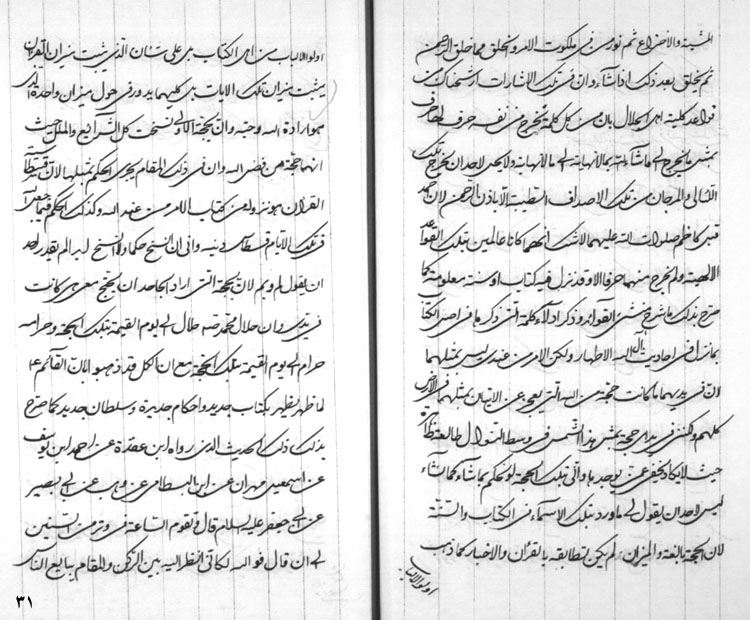 المشية والاختراع ثم نور من في ملكوت الامر والخلق مما خلق الرحمن
ثم يخلق بعد ذلك اذا شاء وان في تلك الاشارات رشحات من
قواعد كلية اهل الجلال بان من كل كلمة يخرج من نفسه حرف
بمثل ما يخرج الى ما شاء الله بما لا نهاية الى ما لا نهاية ولا يحل لاحد ان يخرج تلك
اللئالي والمرجان من تلك الاصداف الا باذن الرحمن لان احمد
قبل كاظم صلوات الله عليهما لا شك انهما كانا عالمين بتلك القواعد
الالهية ولم يخرج منهما حرفا الا وقد نزل فيه كتاب او سنة معلومة كما
صرح بذلك ما شرح في الفوائد وذكر ادلاء كلمة التي ذكرها في اصل الكتاب
بما نزل في احاديث آل الله الاطهار ولكن الامر عندي ليس بمثلهما
ان في يديهما ما كانت حجة من الله التي يعجز عن الاتيان بمثلها من في الارض
كلهم ولكن في يدي حجة بمثل هذا الشمس في وسط الزوال طالعة ظاهرة
حيث لا يكاد يخفى عن يوحدها واني بتلك الحجة لو نحكم بما شاء كما شاء
ليس لاحد ان يقول لي ما ورد بتلك الاسماء في الكتاب والسنة
لان الحجة بالغة والميزان لم يكن لتطابقه بالقرآن والاخبار كما ذهب
اولو الالباب
اولو الالباب من اهل الكتاب بل على شان الذي يثبت ميزان القرآن
يثبت ميزان تلك الايات بل كليهما يدور في حول ميزان واحدة التي
هو ارادة الله وحبه وان بحجة الاولى نسخت كل الشرايع والملل حيث
انها حجة من فضل الله وان في ذلك المقام يجري الحكم بمثلها لان قسطاس
القرآن هو نزوله من كتاب الامر من عند الله وكذلك الحكم فيما جعل الله
في تلك الايام قسطاس دينه واني ان انسخ حكما او لا انسخ لم يقدر احد
ان يقول لم وبم لان بحجة التي اراد الجاحد ان يحتج معي هي كانت
في يدي وان حلال محمد ص حلال الى يوم القيمة بتلك الحجة وحرامه
حرام الى يوم القيمة بتلك الحجة مع ان الكل قد ذهبوا بان القائم ع
لما ظهر يظهر بكتاب جديد واحكام جديدة وسلطان جديد كما صرح
بذلك ذلك الحديث الذي رواه ابن عقدة عن احمد ابن يوسف
عن اسمعيل مهران عن ابن البطائني عن وهب عن ابي بصير
عن ابي جعفر عليه السلام قال ع تقوم الساعة في وتر من السنين
الى ان قال فوالله لكاني انظر اليه بين الركن والمقام يبايع الناس
٣١